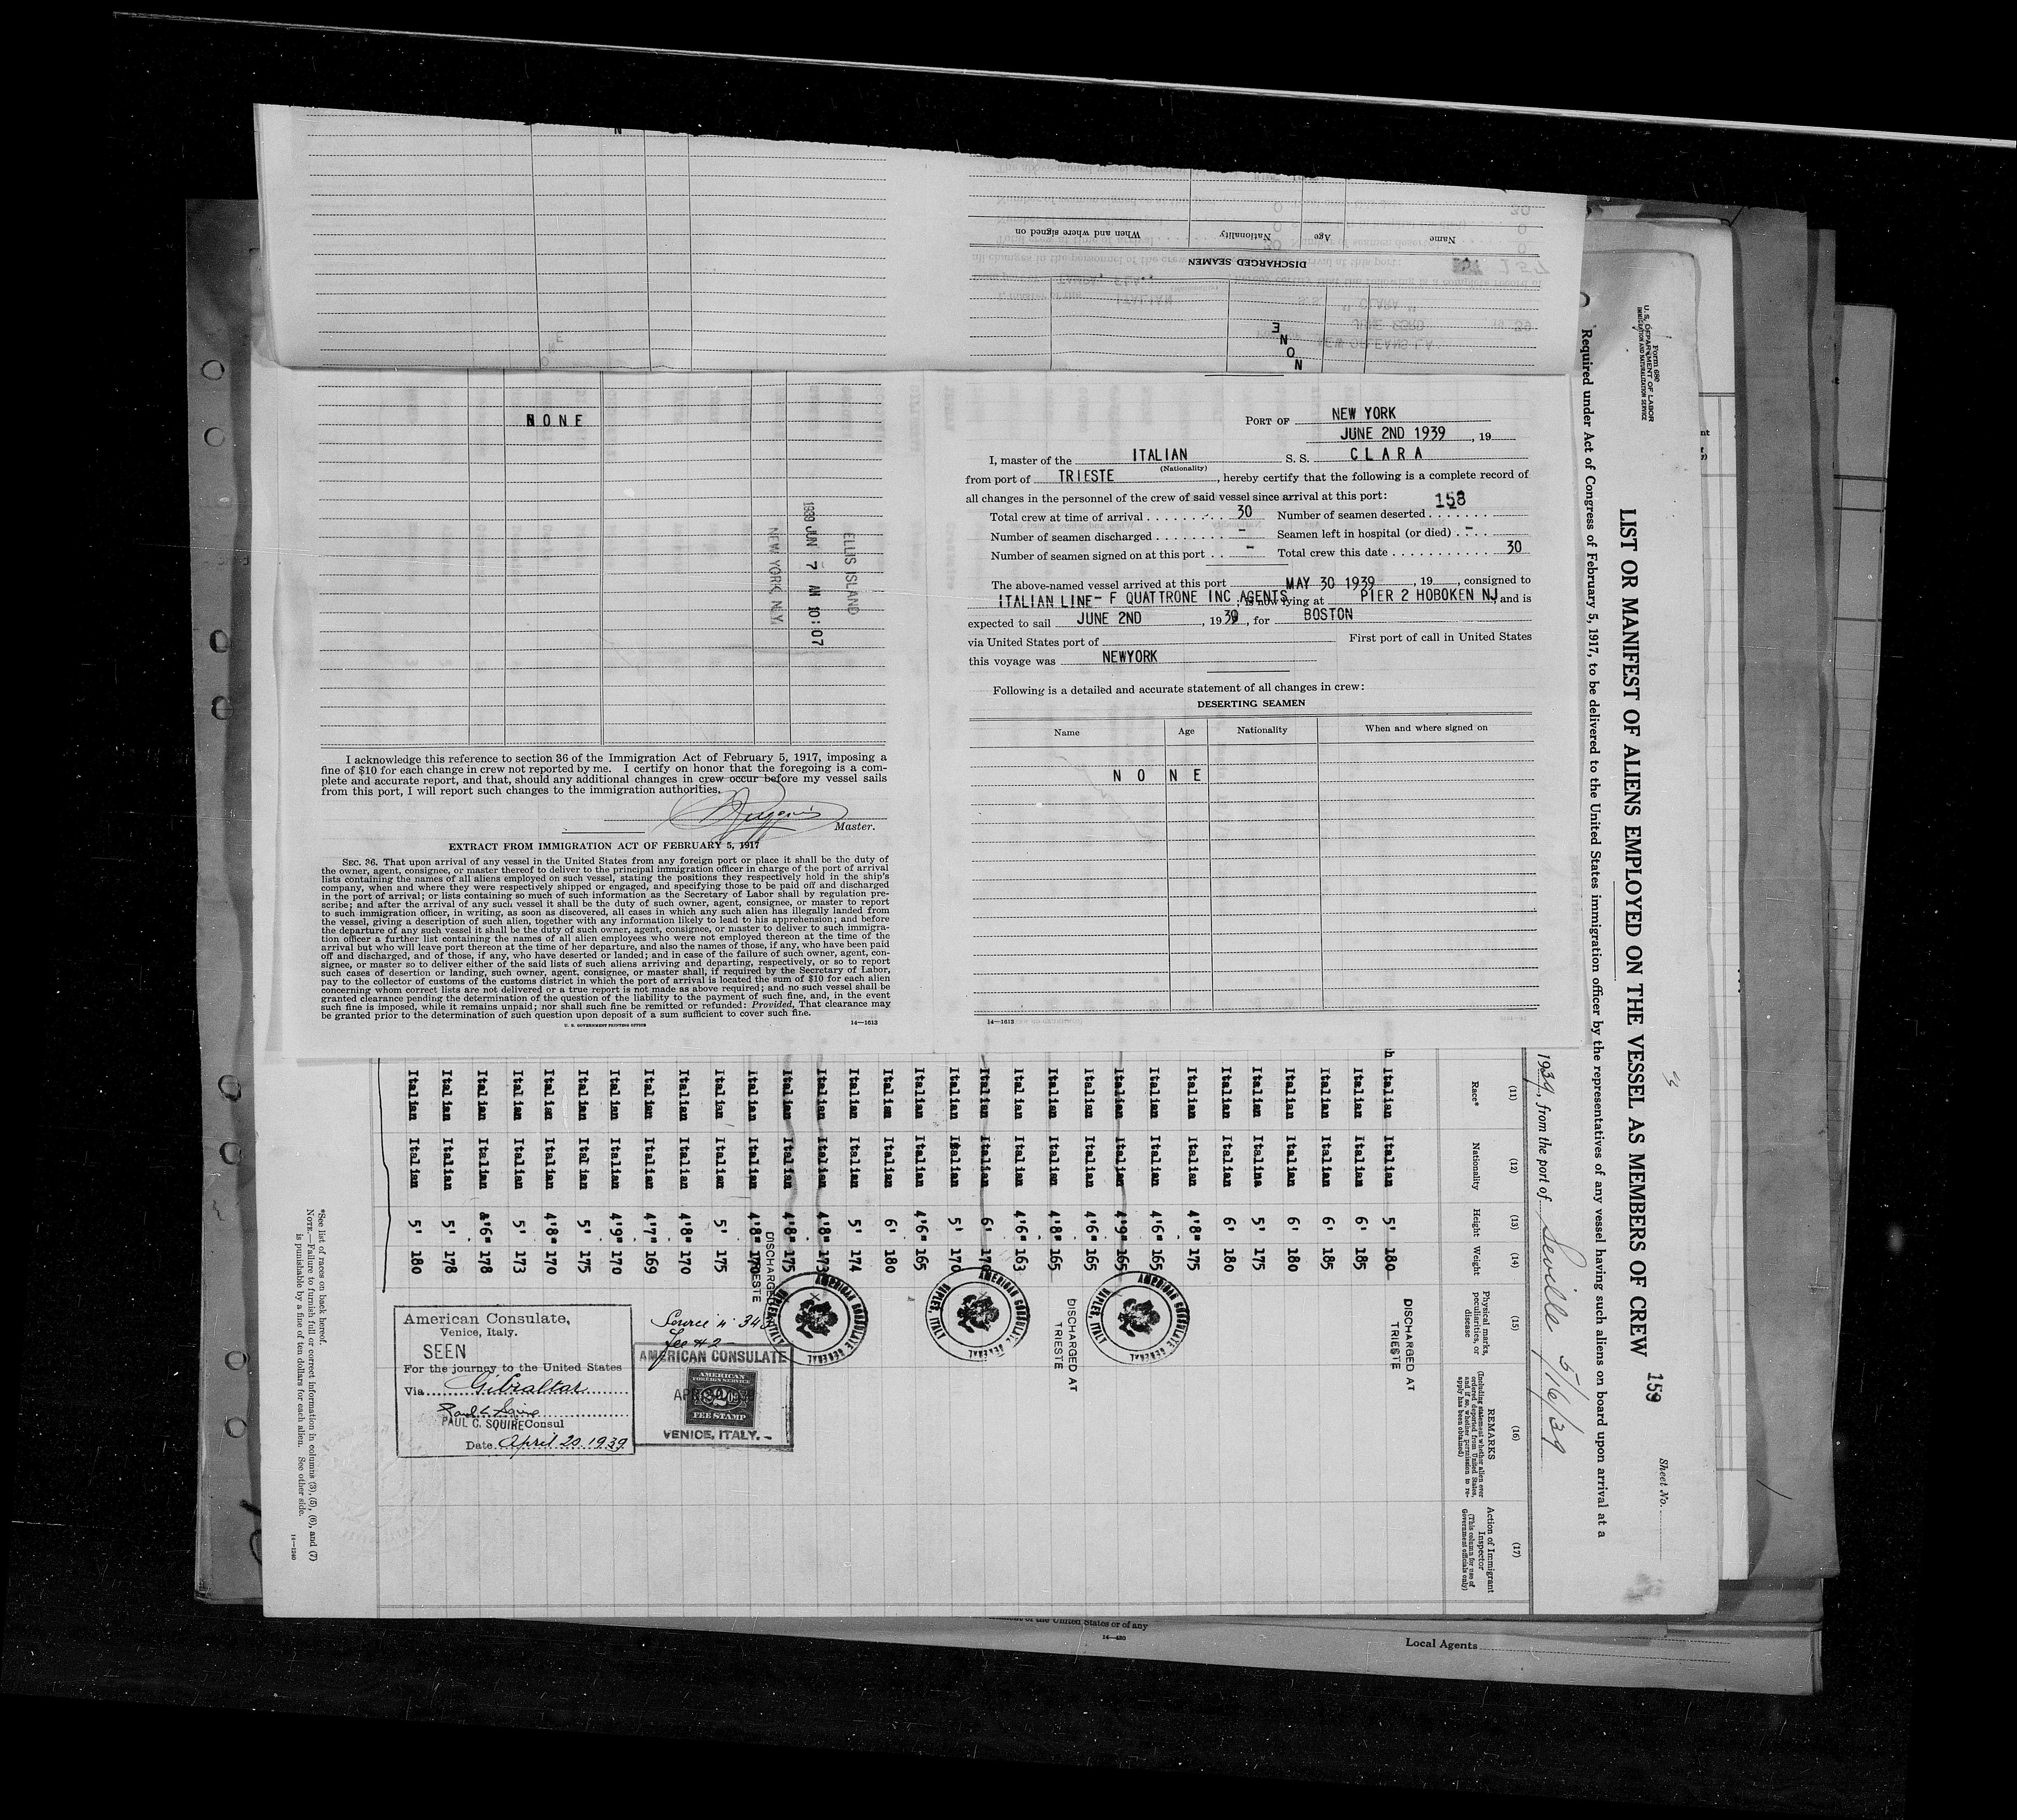 When and where signed on
Nationality
Age
Name
DISCHARGED SEAMEN
N O N E
NONE
1939 JUN 7 AM 10:07
ELLIS ISLAND
NEW YORK, N.Y.
I acknowledge this reference to section 36 of the Immigration Act of February 5, 1917, imposing a
fine of $10 for each change in crew not reported by me. I certify on honor that the foregoing is a com-
plete and accurate report, and that, should any additional changes in crew occur before my vessel sails
from this port, I will report such changes to the immigration authorities.
Master.
EXTRACT FROM IMMIGRATION ACT OF FEBRUARY 5, 1917
SEC. 36. That upon arrival of any vessel in the United States from any foreign port or place it shall be the duty of
the owner, agent, consignee, or master thereof to deliver to the principal immigration officer in charge of the port of arrival
lists containing the names of all aliens employed on such vessel, stating the positions they respectively hold in the ship's
company, when and where they were respectively shipped or engaged, and specifying those to be paid off and discharged
in the port of arrival; or lists containing so much of such information as the Secretary of Labor shall by regulation pre-
scribe; and after the arrival of any such vessel it shall be the duty of such owner, agent, consignee, or master to report
to such immigration officer, in writing, as soon as discovered, all cases in which any such alien has illegally landed from
the vessel, giving a description of such alien, together with any information likely to lead to his apprehension; and before
the departure of any such vessel it shall be the duty of such owner, agent, consignee, or master to deliver to such immigra-
tion officer a further list containing the names of all alien employees who were not employed thereon at the time of the
arrival but who will leave port thereon at the time of her departure, and also the names of those, if any, who have been paid
off and discharged, and of those, if any, who have deserted or landed; and in case of the failure of such owner, agent, con-
signee, or master so to deliver either of the said lists of such aliens arriving and departing, respectively, or so to report
such cases of desertion or landing, such owner, agent, consignee, or master shall, if required by the Secretary of Labor,
pay to the collector of customs of the customs district in which the port of arrival is located the sum of $10 for each alien
concerning whom correct lists are not delivered or a true report is not made as above required; and no such vessel shall be
granted clearance pending the determination of the question of the liability to the payment of such fine, and, in the event
such fine is imposed, while it remains unpaid; nor shall such fine be remitted or refunded: Provided, That clearance may
be granted prior to the determination of such question upon deposit of a sum sufficient to cover such fine.
U. S. GOVERNMENT PRINTING OFFICE 14—1613
PORT OF NEW YORK
JUNE 2ND 1939, 19
I, master of the ITALIAN S. S. CLARA
(Nationality)
from port of TRIESTE, hereby certify that the following is a complete record of
all changes in the personnel of the crew of said vessel since arrival at this port: 158
Total crew at time of arrival 30 Number of seamen deserted
Number of seamen discharged - Seamen left in hospital (or died) -
Number of seamen signed on at this port - Total crew this date 30
The above-named vessel arrived at this port MAY 30 1939, 19, consigned to
ITALIAN LINE- F QUATTRONE INC AGENTS, is now lying at PIER 2 HOBOKEN NJ, and is
expected to sail JUNE 2ND, 1939, for BOSTON
via United States port of First port of call in United States
this voyage was NEWYORK
Following is a detailed and accurate statement of all changes in crew:
DESERTING SEAMEN
Name Age Nationality When and where signed on
N O N E
14—1613
Form 680
U. S. DEPARTMENT OF LABOR
IMMIGRATION AND NATURALIZATION SERVICE
3
Sheet No.
LIST OR MANIFEST OF ALIENS EMPLOYED ON THE VESSEL AS MEMBERS OF CREW 159
Required under Act of Congress of February 5, 1917, to be delivered to the United States immigration officer by the representatives of any vessel having such aliens on board upon arrival at a
1939, from the port of Seville 5/16/39
(11) (12) (13) (14) (15) (16) (17)
Race* Nationality Height Weight Physical marks, peculiarities, or disease
REMARKS
(Including statement whether alien ever ordered deported from United States, and if so, whether permission to reapply has been obtained)
Action of Immigrant Inspector
(This column for use of Government officials only)
Italian Italian 5' 180 DISCHARGED AT TRIESTE
Italian Italian 6' 185
Italian Italian 6' 185
Italian Italian 6' 180
Italian Italina 5' 175
Italian Italian 6' 180
Italian Italian 4'8" 175
Italian Italian 4'6" 165
Italian Italian 4'9" 165
Italian Italian 4'6" 165
Italian Italian 4'8" 165 DISCHARGED AT TRIESTE
Italian Italian 4'6" 163
Italian Italian 6'
Italian Italian 5' 170
Italian Italian 4'6" 165
Italian Italian 6' 180
Italian Italian 5' 174
Italian Italian 4'8" 173
Italian Italian 4'8" 175
Italian Italian 4'8" 170 DISCHARGED TRIESTE
Italian Italian 5' 175
Italian Italian 4'8" 170
Italian Italian 4'7" 169
Italian Italian 4'9" 170
Italian Italian 5' 175
Italian Italian 4'8" 170
Italian Italian 5' 173
Italian Italian 6" 178
Italian Italian 5' 178
Italian Italian 5' 180
AMERICAN CONSULATE GENERAL NAPLES, ITALY
AMERICAN CONSULATE GENERAL NAPLES, ITALY
AMERICAN CONSULATE GENERAL
American Consulate,
Venice, Italy.
SEEN
For the journey to the United States
Via Gibraltar
Paul C. Squire
PAUL C. SQUIRE Consul
Date April 20 1939
AMERICAN CONSULATE
AMERICAN
FOREIGN SERVICE
$2
FEE STAMP
VENICE, ITALY.
*See list of races on back hereof.
NOTE.—Failure to furnish full or correct information in columns (3), (5), (6), and (7)
is punishable by a fine of ten dollars for each alien. See other side.
14—1240
of the United States or of any
14—430
Local Agents